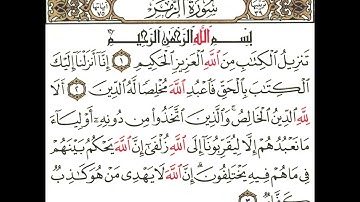 سُورَةُ الزُّمَرِ
بِسْمِ اللَّهِ الرَّحْمَٰنِ الرَّحِيمِ
تَنزِيلُ الْكِتَابِ مِنَ اللَّهِ الْعَزِيزِ الْحَكِيمِ ۝١ إِنَّا أَنزَلْنَا إِلَيْكَ
الْكِتَابَ بِالْحَقِّ فَاعْبُدِ اللَّهَ مُخْلِصًا لَّهُ الدِّينَ ۝٢ أَلَا
لِلَّهِ الدِّينُ الْخَالِصُ ۚ وَالَّذِينَ اتَّخَذُوا مِن دُونِهِ أَوْلِيَاءَ
مَا نَعْبُدُهُمْ إِلَّا لِيُقَرِّبُونَا إِلَى اللَّهِ زُلْفَىٰ إِنَّ اللَّهَ يَحْكُمُ بَيْنَهُمْ
فِي مَا هُمْ فِيهِ يَخْتَلِفُونَ ۗ إِنَّ اللَّهَ لَا يَهْدِي مَنْ هُوَ كَاذِبٌ